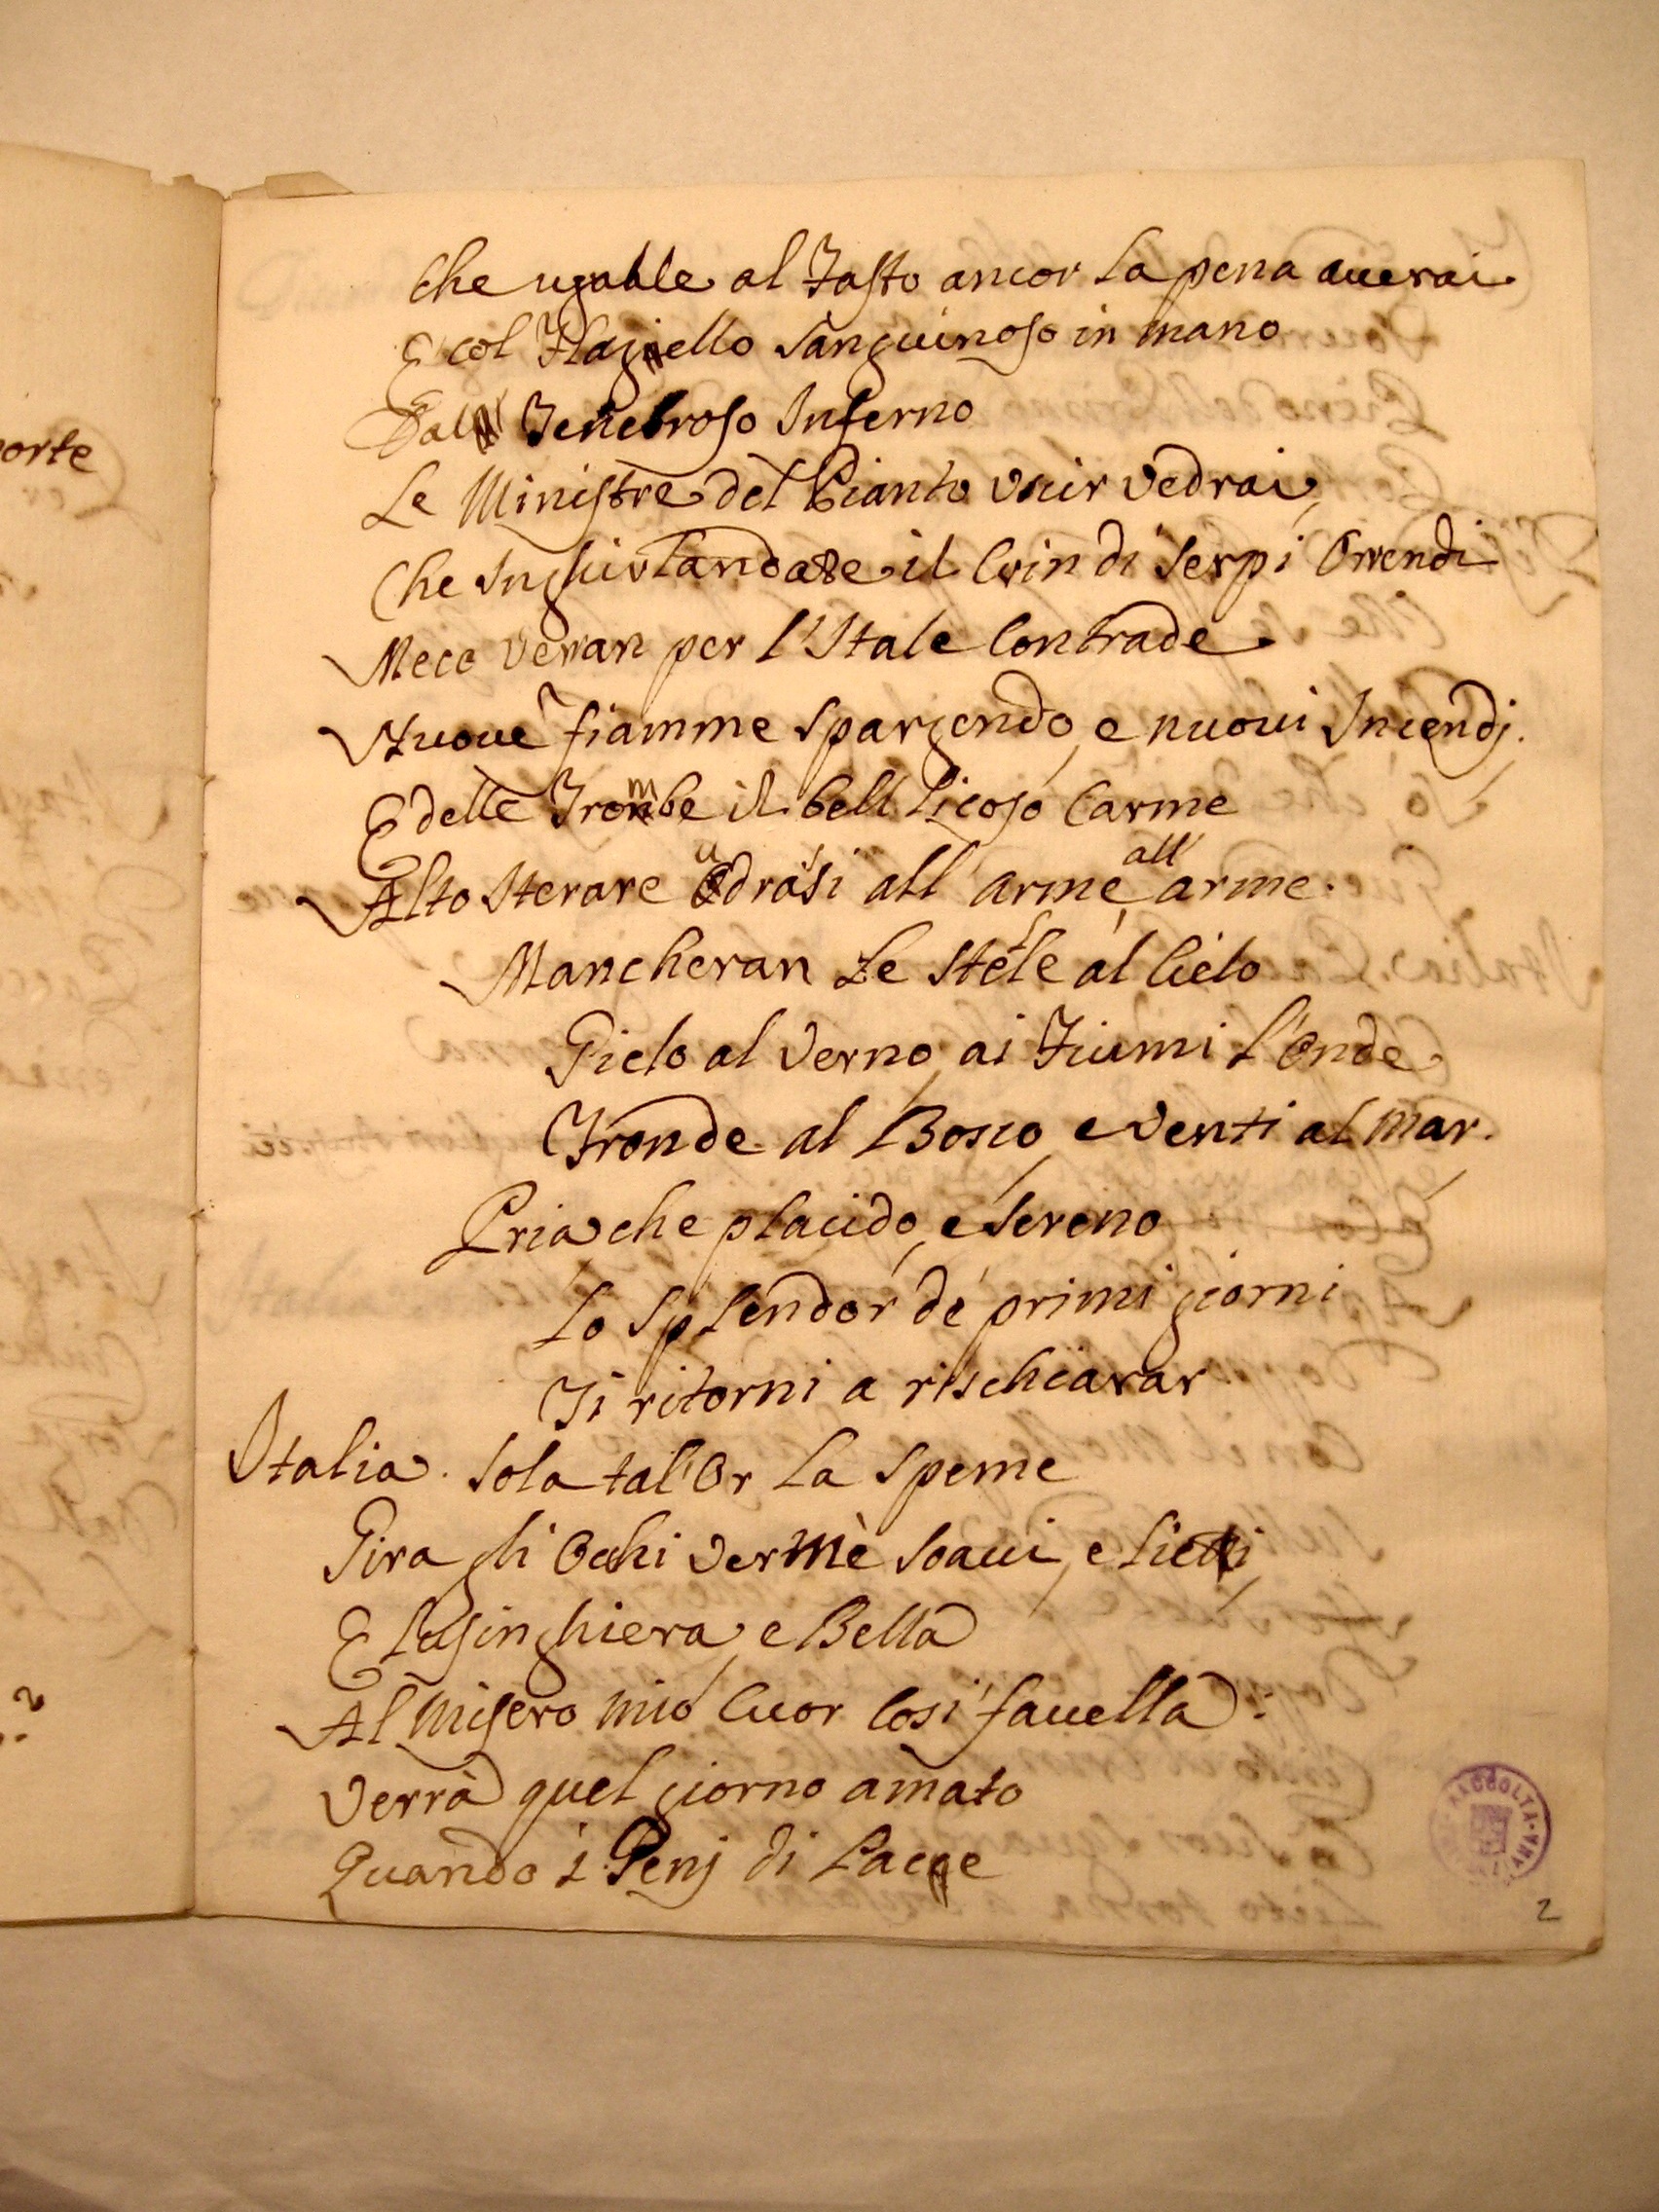 che uguale al Fasto ancor la pena auerai
E col Flagello sanguinoso in mano
Dal Tenebroso Inferno
Le Ministre del Pianto vscir vedrai,
Che Inghirlandate il Crin di serpi Orrendi
Meco verran per l'Itale Contrade
Nuoue fiamme spargendo, e nuoui Incendj.
E delle Trombe il bell licoso Carme
Alto Iterare udrasi all' arme, all' arme.
Mancheran Le stelle al Cielo
Gielo al Verno, ai Fiumi L'Onde
Fronde al Bosco, e Venti al Mar.
Pria che placido, e sereno
Lo splendor de' primi giorni
Ti ritorni a rischiarar
Italia. Sola tal'Or La speme
Gira gli Occhi ver mè soaui, e lieti,
E lusinghiera, e Bella
Al Misero mio Cuor Cosi fauella:
Verrà quel giorno amato
Quando i Genj di Pace
orte
RACCOLTA
2